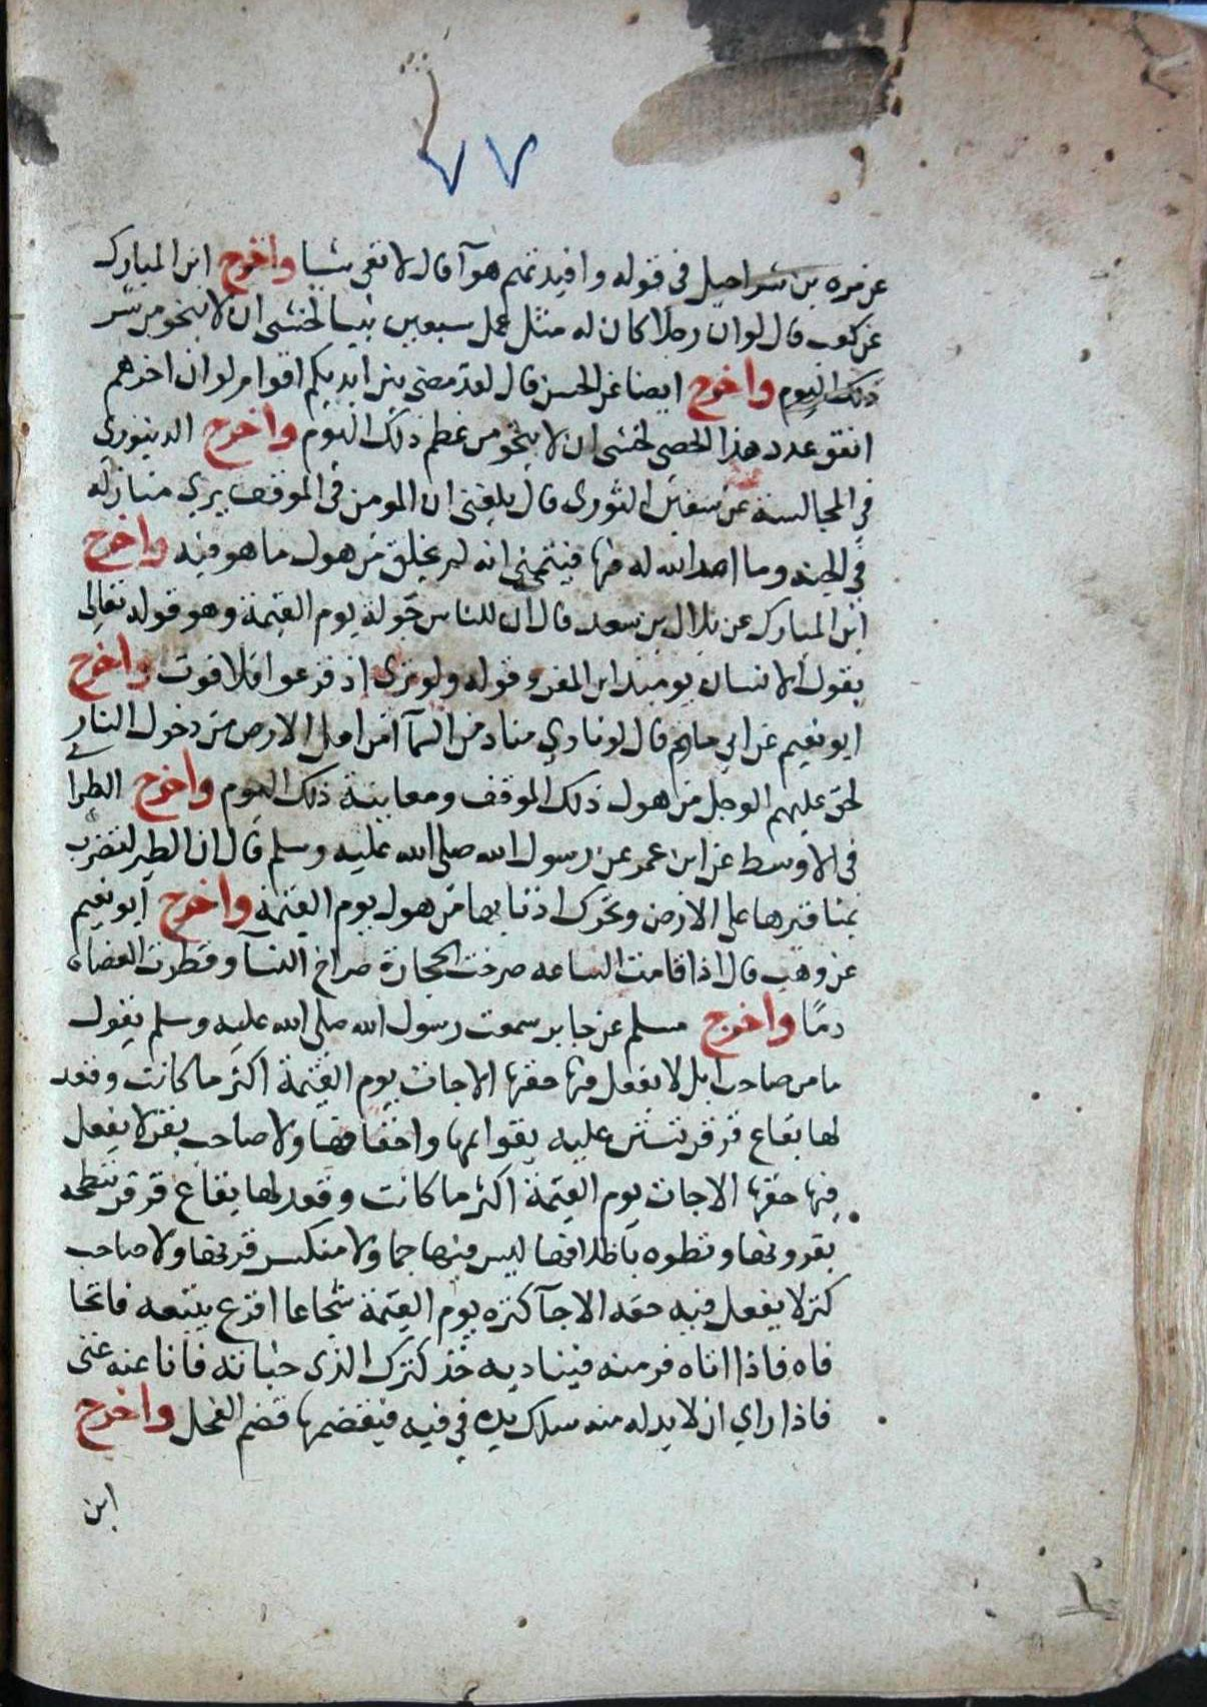 ٧٧
عن مره بن شراحيل فى قوله وافيدتهم هوآ قال لا تعى شيا واخرج ابن المبارك
عن كعب قال لو ان رجلا كان له مثل عمل سبعين نبيا لخشى ان لا ينجو من شر
ذلك اليوم واخرج ايضا عن الحسن قال لقد مضى بين ايديكم اقوام لو ان احدهم
انفق عدد هذا الحصى لخشى ان لا ينجو من عظم ذلك اليوم واخرج الدينوري
في المجالسة عن سفين الثورى قال بلغنى ان المومن فى الموقف يرى منازله
في الجنه وما اعد الله له فيها فيتمنى انه لم يخلق من هول ما هو فيه واخرج
ابن المبارك عن بلال بن سعد قال ان للناس جولة يوم القيمة وهو قوله تعالى
يقول الانسان يوميذ اين المفر وقوله ولو ترى اذ فزعوا فلا فوت واخرج
ابو نعيم عن ابي حازم قال لو نادي مناد من السمآ امن اهل الارض من دخول النار
لحق عليهم الوجل من هول ذلك الموقف ومعاينة ذلك اليوم واخرج الطبرا
نے
فى الاوسط عن ابن عمر عن رسول الله صلى الله عليه وسلم قال ان الطير لتضرب
بمناقيرها على الارض وتحرك اذنابها من هول يوم القيمة واخرج ابو نعيم
عن وهب قال اذا قامت الساعه صرخت الحجارة صراخ النسآ وقطرت العضاه
دمًا واخرج مسلم عن جابر سمعت رسول الله صلى الله عليه وسلم يقول
ما من صاحب ابل لا يفعل فيها حقها الا جات يوم القيمة اكثر ما كانت وقعد
لها بقاع قرقر تستن عليه بقوايمها واخفافها ولا صاحب بقر لا يفعل
فيها حقها الا جات يوم القيمة اكثر ما كانت وقعد لها بقاع قرقر تنطحه
بقرونها وتطوه باظلافها ليس فيها جما ولا منكسر قرنها ولا صاحب
كنز لا يفعل فيه حقه الا جآ كنزه يوم القيمة شجاعا اقرع يتبعه فاتحا
فاه فاذا اتاه فر منه فيناديه خذ كنزك الذى خباته فانا عنه غنى
فاذا راي ان لا بد له منه سلك يده في فيه فيقضمها قضم الفحل واخرج
ابن